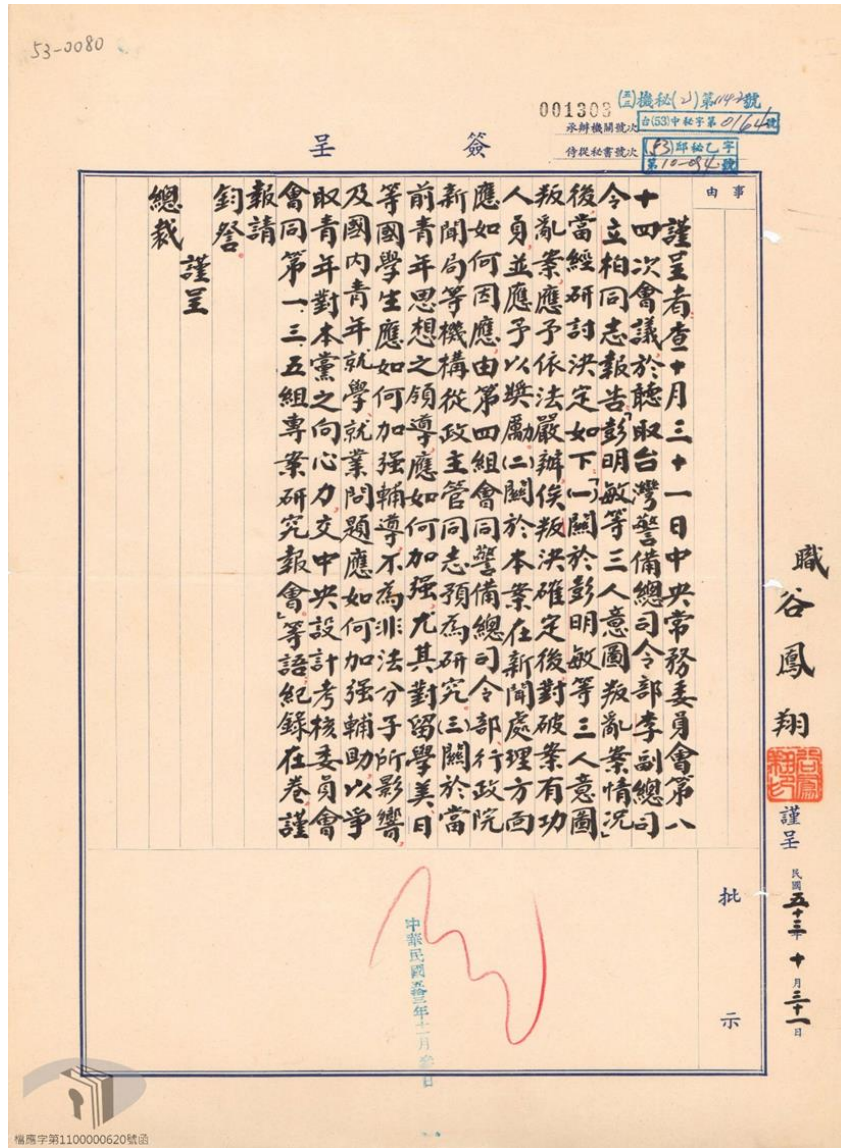 53-0080
001303
(五三)機秘(乙)第1142號
承辦機關號次
台(53)中秘字第0164號
侍從秘書號次
(53)邱秘乙字
第10-094號
簽呈
事由
謹呈者查十月三十一日中央常務委員會第八
十四次會議於聽取台灣警備總司令部李副總司
令立柏同志報告「彭明敏等三人意圖叛亂案情況」
後當經研討決定如下「(一)關於彭明敏等三人意圖
叛亂案應予依法嚴辦俟叛決確定後對破案有功
人員並應予以獎勵(二)關於本案在新聞處理方面
應如何因應由第四組會同警備總司令部行政院
新聞局等機構從政主管同志預為研究(三)關於當
前青年思想之領導應如何加强尤其對留學美日
等國學生應如何加强輔導不為非法分子所影響
及國內青年就學就業問題應如何加强輔助以爭
取青年對本黨之向心力交中央設計考核委員會
會同第一、三、五組專案研究報會」等語紀錄在卷謹
報請
鈞詧。
謹呈
總裁
職谷鳳翔
謹呈
民國五十三年十月三十一日
批示
中華民國五拾三年十一月
檔應字第1100000620號函